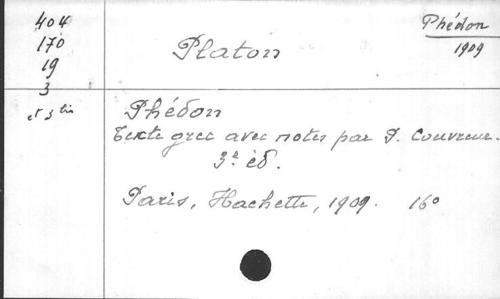 404
170
19
3
et 3 bis
Phédon
1909
Platon
Phédon
Texte grec avec notes par P. Couvreur.
3e éd.
Paris, Hachette, 1909. 16o